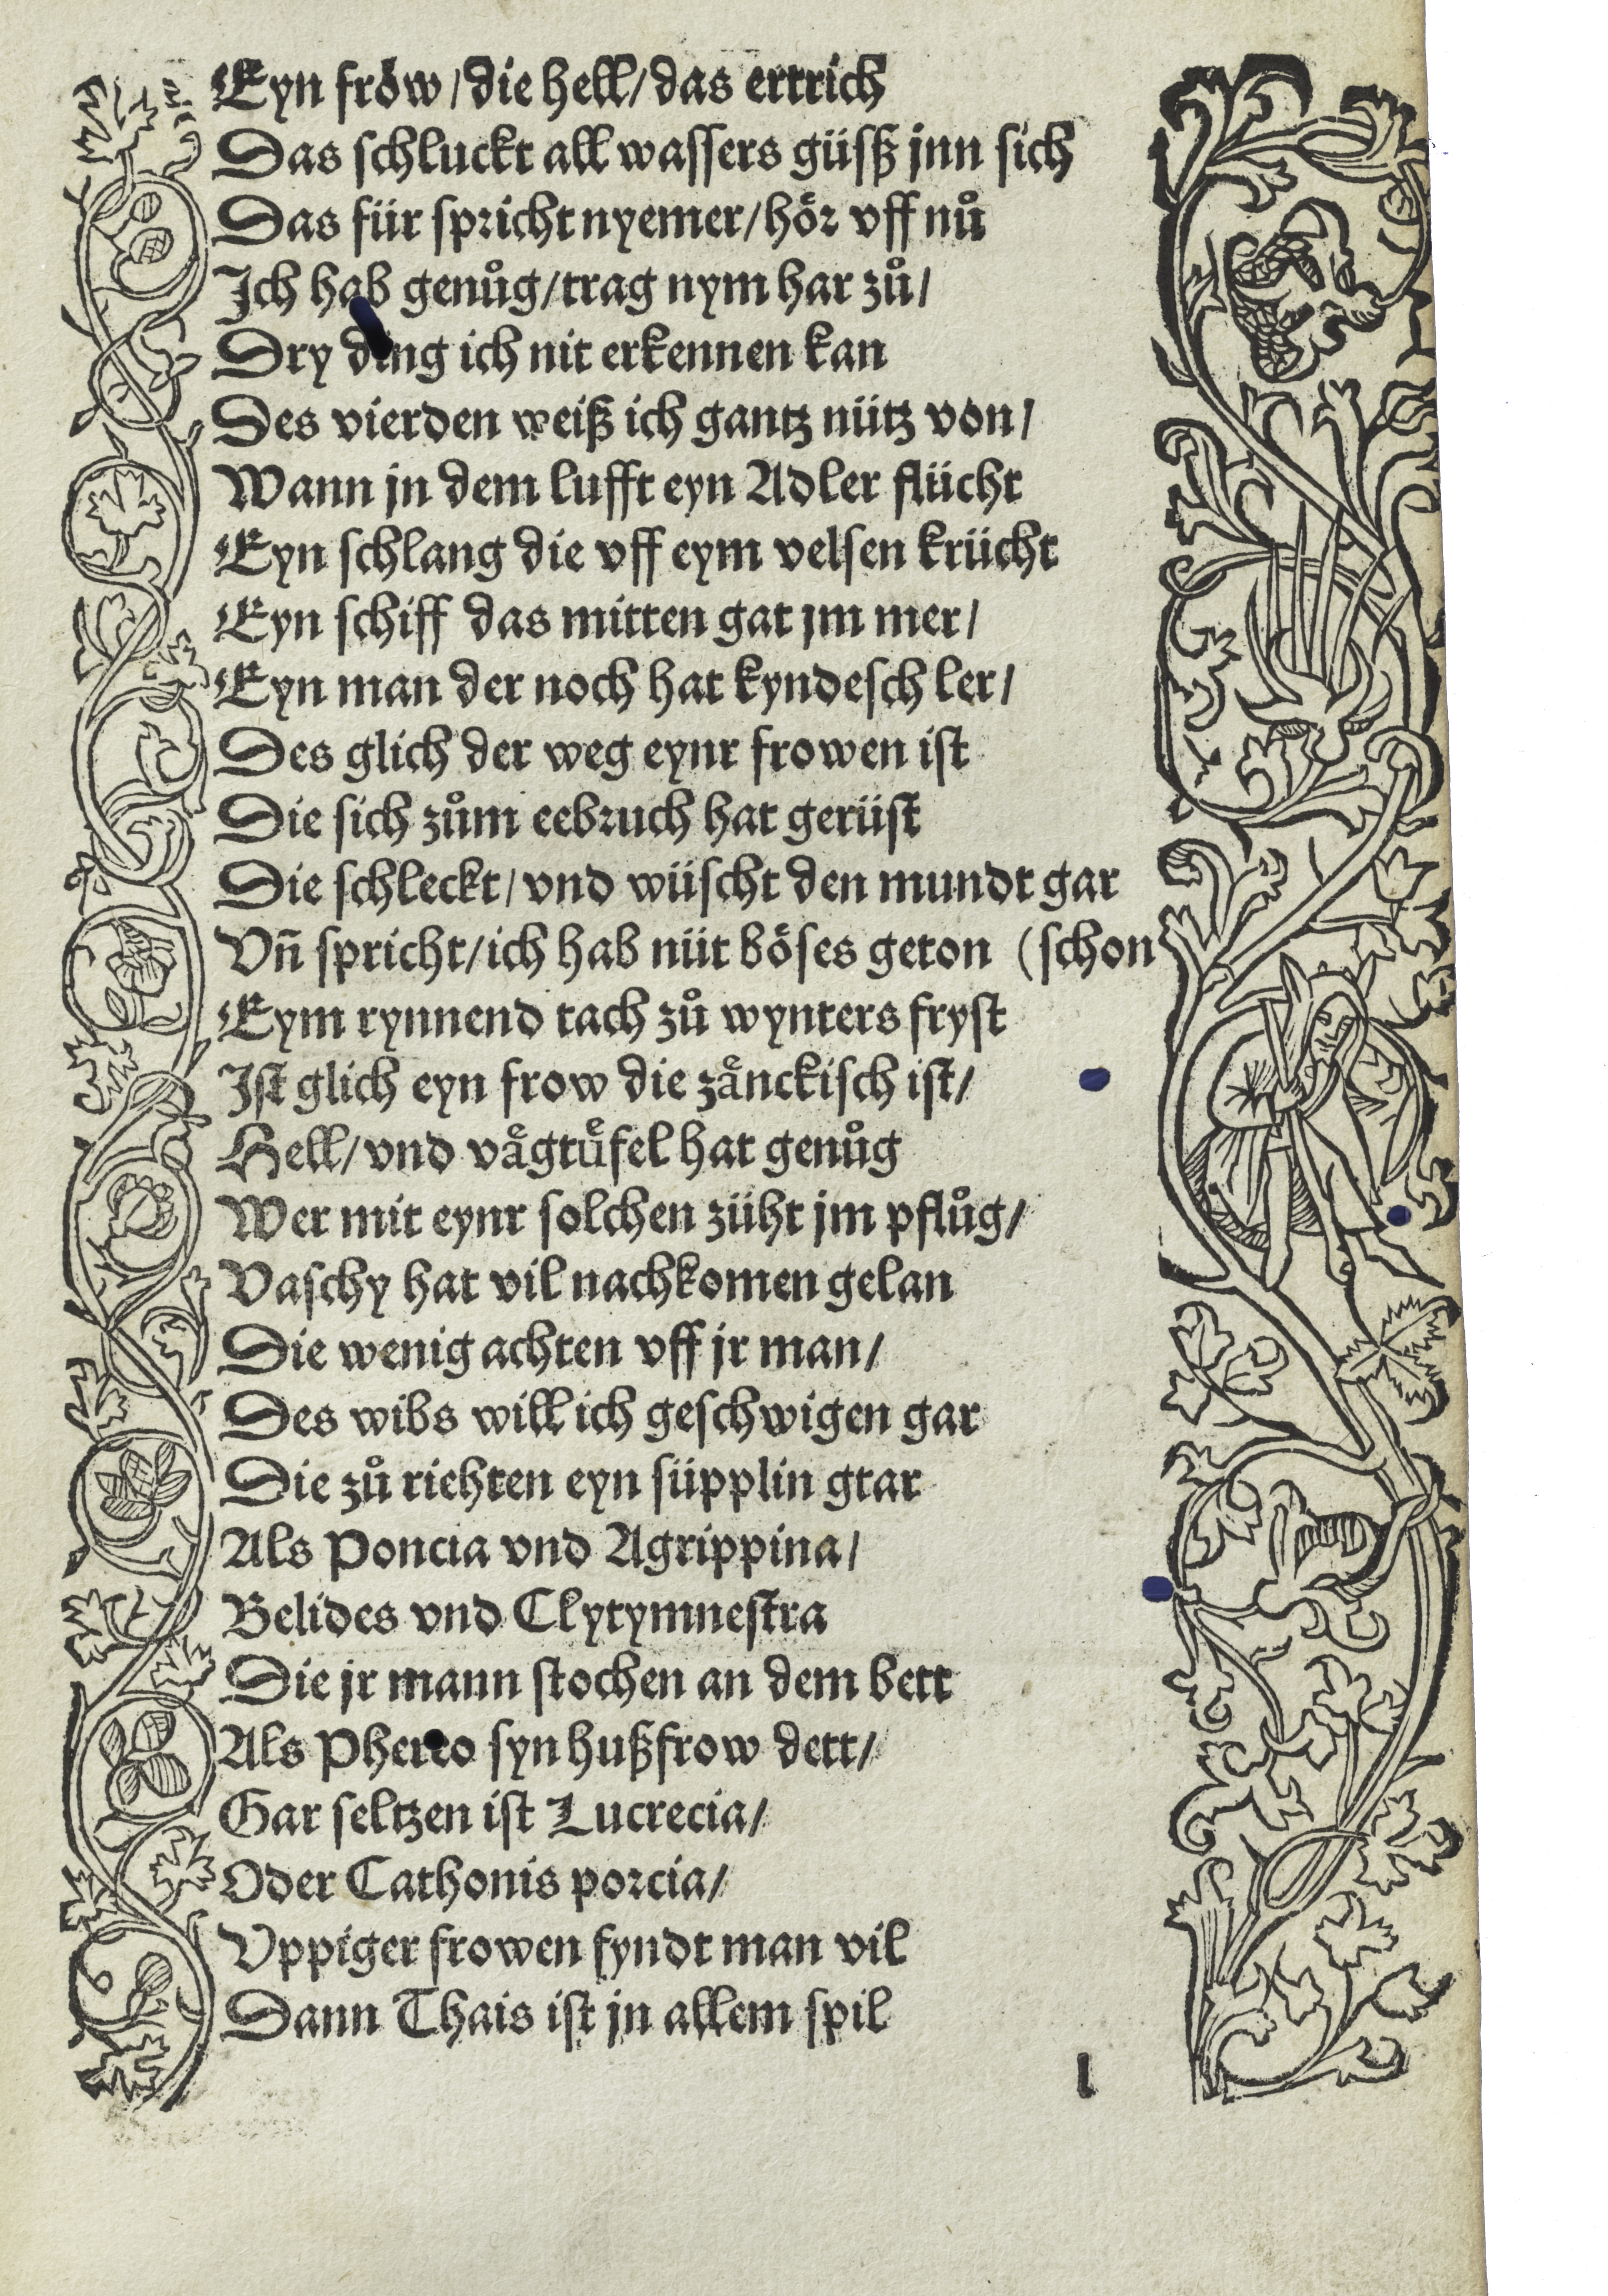 Eyn frow / die hell / das ertrich
Das schluckt all wassers güsß jnn sich
Das für spricht nyemer / hoͤr vff nuͦ
Ich hab genuͦg / trag nym har zuͦ /
Dry ding ich nit erkennen kan
Des vierden weiß ich gantz nütz von /
Wann jn dem lufft eyn Adler flücht
Eyn schlang die vff eym velsen krücht
Eyn schiff das mitten gat jm mer /
Eyn man der noch hat kyndesch ler /
Des glich der weg eynr frowen ist
Die sich zuͦm eebruch hat gerüst
Die schleckt / vnd wüscht den mundt gar
Vñ spricht / ich hab nüt boͤses geton (schon
Eym rynnend tach zuͦ wynters fryst
Ist glich eyn frow die zaͤnckisch ist /
Hell / vnd vaͤgtuͤfel hat genuͦg
Wer mit eynr solchen züht jm pfluͦg /
Vaschy hat vil nachkomen gelan
Die wenig achten vff jr man /
Des wibs will ich geschwigen gar
Die zuͦ riehten eyn süpplin gtar
Als Poncia vnd Agrippina /
Belides vnd Clytymnestra
Die jr mann stochen an dem bett
Als syn hußfrow dett /
Gar seltzen ist Lucrecia /
Oder Cathonis porcia /
Vppiger frowen fyndt man vil
Dann Thais ist jn allem spil
l